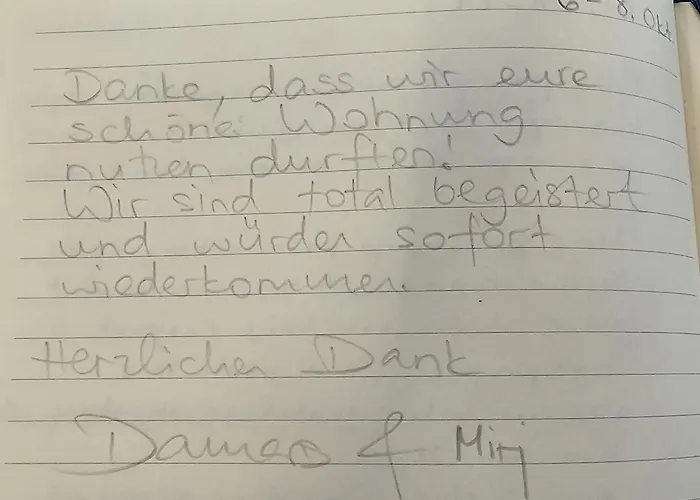 6 - 8. Okt
Danke, dass wir eure
schöne Wohnung
nutzen durften!
Wir sind total begeistert
und würden sofort
wiederkommen.
Herzlichen Dank
&